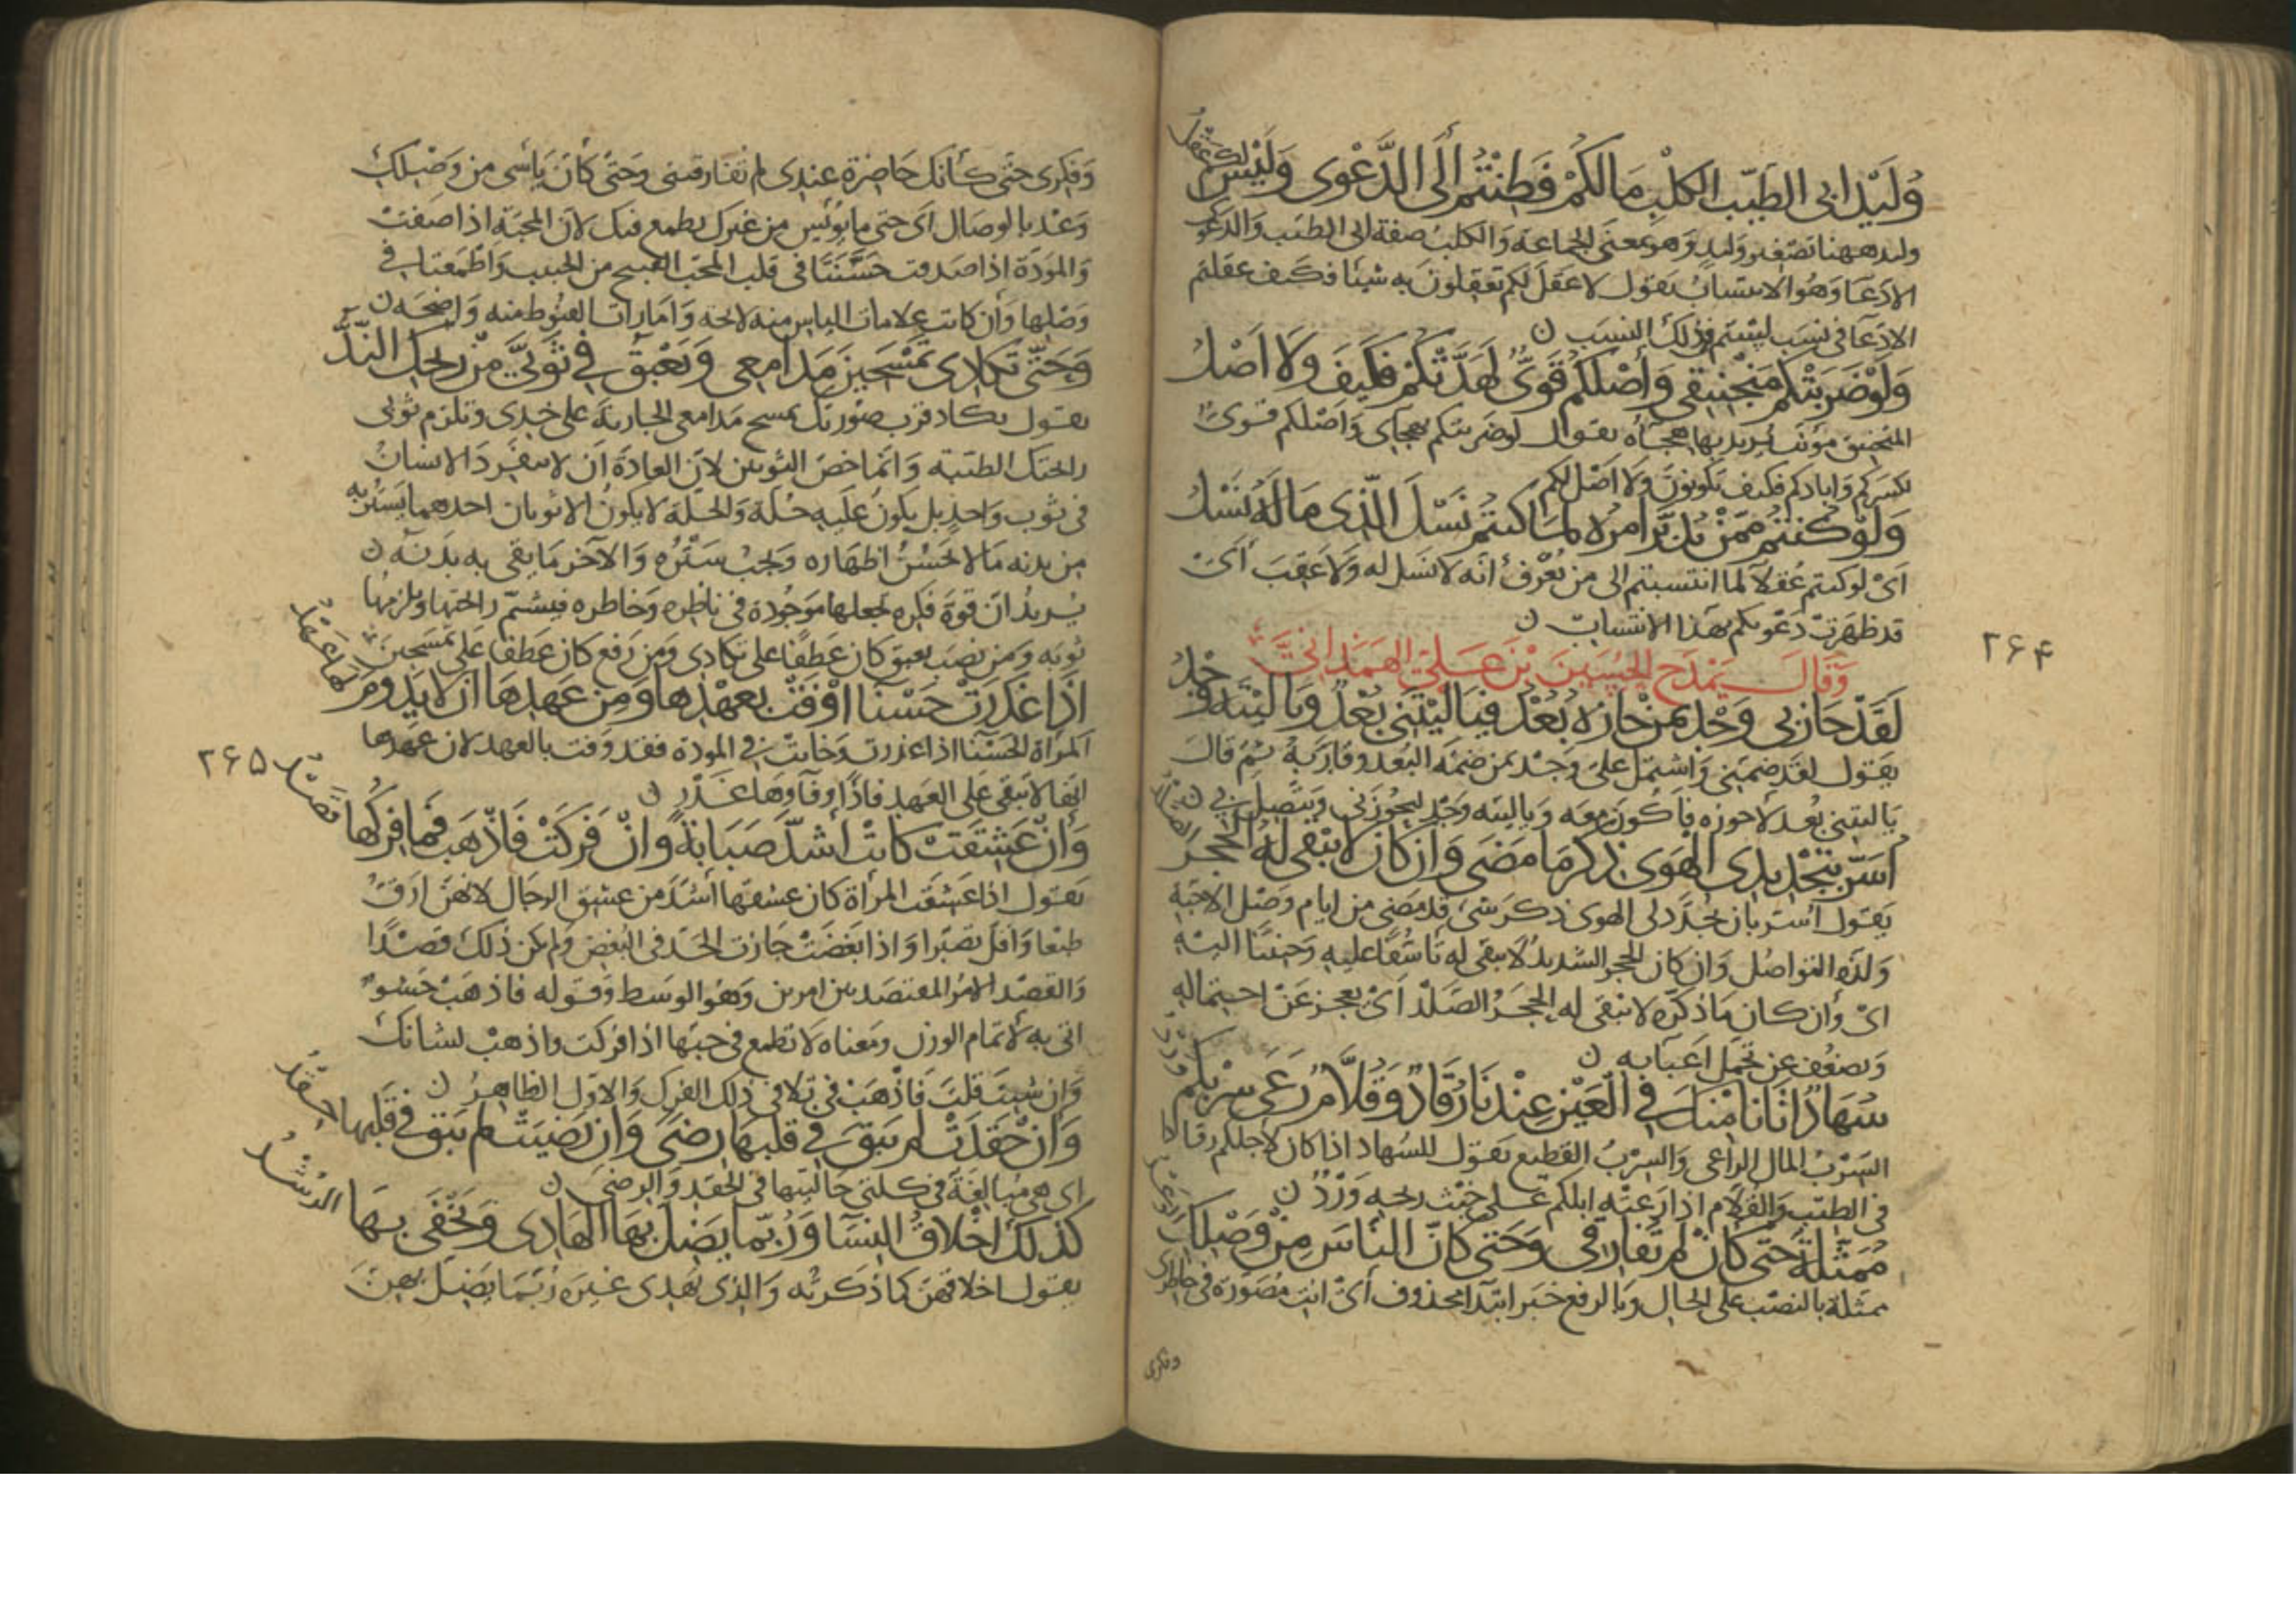 وُلَيْدَ ابى الطَيّب الكلْبِ مَا لكُمْ فَطِنْتُم أَلَى الدَّعْوى وَلَيْسَ لكم عَقْلُ
وليد ههنا تصْغير وَلدٍ وَهو بمعنَى الجماعة وَالكلب صفة ابى الطيّب وَالدعوى
الادّعآ وَهُو الانتسابُ يقول لا عقلَ لكم تعقلونَ به شيئا فكيف عقلتم
الادّعآ فى نسَب لستم من ذلك النسب ن
وَلَوْ ضَرَبتْكم مَنْجَنِيقى وَأصْلكُم قَوىٌّ لهَدَّتْكُم فكيفَ وَلَا اَصْلُ
المنجنيق مؤنث يريد بها هجآه يقول لوضربتكم بهجآى وَاَصْلكم قوىٌّ
لكسركم وَابادكم فكيف تكونونَ وَلا اصْل لكم
وَلوْ كُنتُمُ ممَّنْ يُدَبِّرُ امرَه لمَا كنتم نَسْلَ الّذى مَا لهُ نَسْلُ
اىْ لو كنتم عُقلآ لما انتسبتم الى من يُعْرفُ انّه لا نسَل له وَلا عَقِبَ اَىْ
قد ظهَرتْ دَعْوىكم بهَذا الانتسابِ ن
٢۶۴
وَقَالَ يَمْدَح الحُسَينَ بْنَ عَلىّ الهَمَدَانىَّ
لَقَدْ حَازَنى وَجْدٌ بمَنْ حَازه بُعْدُ فيَا ليْتَنى بُعْدٌ وَيا ليْتَهُ وَجْدُ
يقول لقد ضمّنى وَاشتمل علىّ وَجْد بمن ضمّه البُعد وقارَبه ثم قالَ
يَا ليتنى بُعد لاحوزه فاكُونَ معه وَيا ليته وَجْد ليحُوزَنى ويتّصل بى ن
أُسَرّ بتَجْديدِ الهَوى ذِكرَ مَا مَضَى وَان كانَ لا يَبْقى لهُ الحَجَر الصَّلْدُ
يَقول اُسَرّ بان يجدّد لى الهوى ذكر شىء قد مضى من ايام وصْل الاحبّة
وَلذّة التواصُل وَان كان الحجر الشديدُ لا يبقى له تأسّفًا عليه وَحنينًا اليه
اىْ وَان كان ما ذكرته لا يبقى له الحجَرُ الصَّلْد اَىْ يعجز عَنْ احتماله
وَيضعُف عن تحمل اَعبآيه ن
سُهَادٌ اتانَا مْنكِ فى العَيْنِ عِنْدَنَا رُقَادٌ وَقُلّامٌ رَعَى سَرْبكم وَرْدُ
السَّرْبُ المال الراعى وَالسِرْبُ القطيع يقول للسُهاد اذا كان لاجلكم رقاد
فى الطيّب وَالقُلّام اذا رَعته ابلكم على خبْث ريحه وَرْدٌ ن
مُمَثَّلةٌ حَتّى كأنْ لم تُفارقى وَحَتى كأنّ اليأسَ مِنْ وَصْلكِ الوَعْدُ
ممثلة بالنصْب على الحال وبالرفع خبر ابتدآ محذوف أىْ انت مُصَوّرة فى خاطرى
وفكرى
وَفكرى حتّى كأنك حَاضرة عِندى لم تفارقينى وَحَتّى كأنّ يأسى من وَصْلِك
وَعْد بالوصَال اى حتى ما يُوئس من غيرك يطمع فيك لانّ المحبّة اذا صَفتْ
وَالموَدّة اذا صَدقت حَسّنَتَا فى قلب المحبّ القبيح من الحبيب وَاَطْمَعتاه فى
وَصْلها وَان كانت علامات الياس منه لائحة وَامَارات القنُوط منه وَاضحَة ن
وَحَتّى تكادى تمْسَحينَ مَدَامِعى وَيَعْبقُ فى ثَوْبىَّ مِنْ رِيْحكِ النَّدُّ
يقول يكاد قرب صُورتك يمسح مَدامعى الجارية على خدى وتلزم ثوبى
رائحتك الطيّبة وَانّما خصّ الثوبين لانّ العادة ان لا ينفرد الانسانُ
فى ثوب وَاحدٍ بل يكون عليه حُلّة وَالحلّة لا يكون الا ثوبان احدهما يَستُر به
من بدنه مَا لا يَحسُنُ اظهاره وَيجبُ سَتْرُه وَالآخر مَا يقى به بدنه ن
يُريدُ انّ قوة فكره تجعلها مَوجُودة فى ناظره وخاطره فيشمّ رائحتها ويلزمها
ثوبه وَمن نصَب يعبق كان عَطفًا على تكادى وَمَن رفع كان عَطفًا على تمسَحينَ
اذَا غدَرَتْ حَسْنآ اوْفَتْ بعهْدِهَا وَمِن عَهدِهَا ان لا يَدُومَ لهَا عَهْدُ
المرأة الحَسْنآ اذا غدرت وَخانتْ فى المودة فقد وَفت بالعهد لان عَهدها
انّها لا تبقى على العَهد فاذًا وفآوها غَدْر ن
٢۶۵
وَانْ عَشِقَتْ كانتْ أَشدَّ صَبَابَةً وَانْ فَركَتْ فَاذْهَبْ فَمَا فِرْكُها قَصْدُ
يَقول اذا عَشقَت المرأة كان عشقها أشدّ من عشق الرجال لانهنّ ارَقّ
طبعًا وَاقلّ تصبّرا وَاذا بغَضَتْ جَازت الحَدّ فى البُغض وَلم يكن ذلك قصْدًا
وَالقصْد الامرُ المقتصَد بين امرين وَهُو الوسَط وَقوله فاذهَبْ حَشوٌ
اتى به لاتمام الوزن ومَعناه لا تطمع فى حبّها اذا فركت واذهبْ لشانك
وَان شئتَ قلتَ فاذْهَبْ فى تلافى ذلك الفرك وَالاوّل الظاهرُ ن
وَانْ حَقَدَتْ لم يَبْقَ فى قلبهَا رِضًى وَان رَضيَتْ لم يَبق فى قَلبها حِقْدُ
اى هى مُبالغة فى كلتى حَالتيها فى الحقد وَالرضَى ن
كذلكَ اَخْلاقُ النسَآ وَرُبّما يَضلّ بهَا الهَادى وَيخْفَى بهَا الرُشْدُ
يقول اخلاقهنّ كما ذكرته وَالذى يَهدى غيرَه رُبّمَا يَضلّ بهنّ